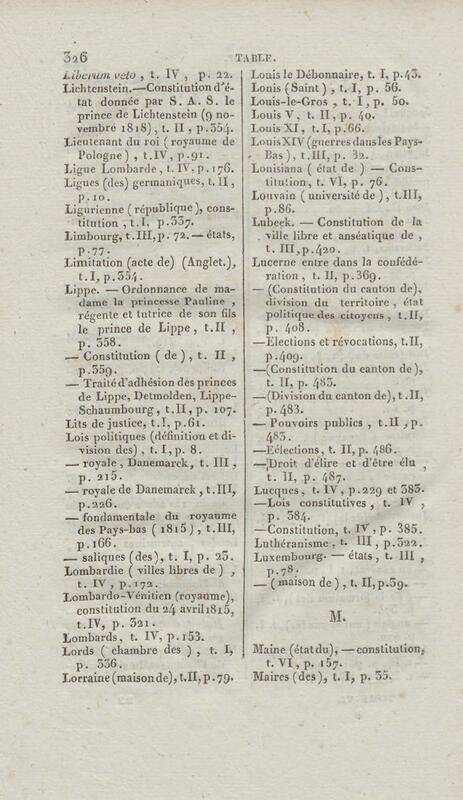 326
TABLE.
Liberum veto, t. IV, p. 22.
Lichtenstein.—Constitution d'é-
tat donnée par S. A. S. le
prince de Lichtenstein (9 no-
vembre 1818), t. II, p. 354.
Lieutenant du roi (royaume de
Pologne), t. IV, p. 91.
Ligue Lombarde, t. IV, p. 176.
Ligues (des) germaniques, t. II,
p. 10.
Ligurienne (république), cons-
titution, t. I, p. 337.
Limbourg, t. III, p. 72.—états,
p. 77.
Limitation (acte de) (Anglet.),
t. I, p. 334.
Lippe. — Ordonnance de ma-
dame la princesse Pauline,
régente et tutrice de son fils
le prince de Lippe, t. II,
p. 358.
— Constitution (de), t. II,
p. 359.
— Traité d'adhésion des princes
de Lippe, Detmolden, Lippe-
Schaumbourg, t. II, p. 107.
Lits de justice, t. I, p. 61.
Lois politiques (définition et di-
vision des), t. I, p. 8.
— royale, Danemarck, t. III,
p. 215.
— royale de Danemarck, t. III,
p. 226.
— fondamentale du royaume
des Pays-bas (1815), t. III,
p. 166.
— saliques (des), t. I, p. 23.
Lombardie (villes libres de),
t. IV, p. 172.
Lombardo-Vénitien (royaume),
constitution du 24 avril 1815,
t. IV, p. 321.
Lombards, t. IV, p. 153.
Lords (chambre des), t. I,
p. 336.
Lorraine (maison de), t. II, p. 79.
Louis le Débonnaire, t. I, p. 43.
Louis (Saint), t. I, p. 56.
Louis-le-Gros, t. I, p. 50.
Louis V, t. II, p. 40.
Louis XI, t. I, p. 66.
Louis XIV (guerres dans les Pays-
Bas), t. III, p. 32.
Louisiana (état de) — Cons-
titution, t. VI, p. 76.
Louvain (université de), t. III,
p. 86.
Lubeck. — Constitution de la
ville libre et anséatique de,
t. III, p. 420.
Lucerne entre dans la confédé-
ration, t. II, p. 369.
— (Constitution du canton de),
division du territoire, état
politique des citoyens, t. II,
p. 408.
— Elections et révocations, t. II,
p. 409.
— (Constitution du canton de),
t. II, p. 483.
— (Division du canton de), t. II,
p. 483.
— Pouvoirs publics, t. II, p.
483.
— Eélections, t. II, p. 486.
— Droit d'élire et d'être élu,
t. II, p. 487.
Lucques, t. IV, p. 229 et 383.
— Lois constitutives, t. IV,
p. 384.
— Constitution, t. IV, p. 385.
Luthéranisme, t. III, p. 322.
Luxembourg. — états, t. III,
p. 78.
— (maison de), t. II, p. 39.
M.
Maine (état du), — constitution,
t. VI, p. 157.
Maires (des), t. I, p. 35.